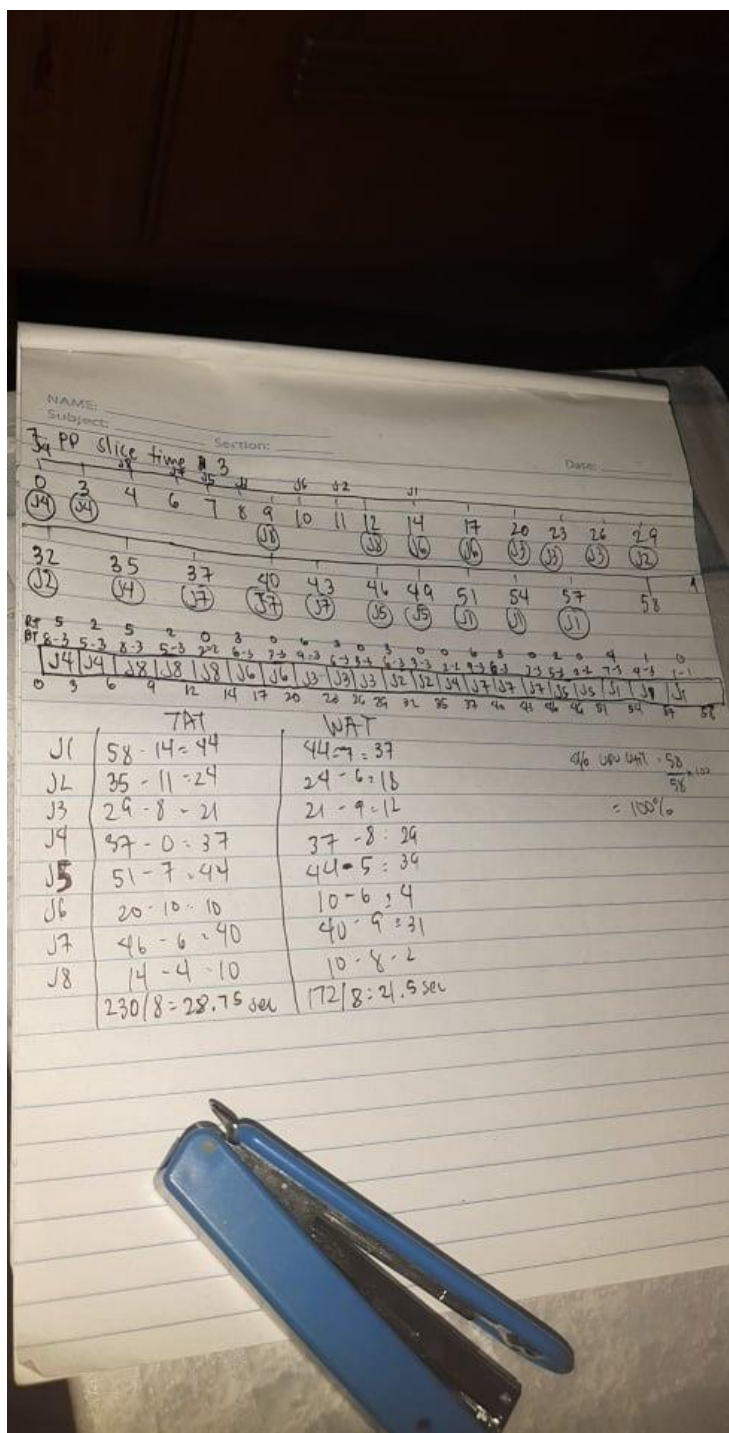 NAME:
Subject:
Section:
Date:
PP slice time 3
J4 J8 J7 J5 J6 J2 J1
0 3 4 6 7 8 9 10 11 12 14 17 20 23 26 29
J4 J4 J8 J8 J6 J6 J3 J3 J3 J2
32 35 37 40 43 46 49 51 54 57 58
J2 J4 J7 J7 J7 J5 J5 J1 J1 J1
RT 5 2 5 2 0 3 0 6 3 0 3 0 0 6 3 0 2 0 4 1 0
BT 8-3 5-3 8-3 5-3 2-2 6-3 3-3 9-3 6-3 3-3 6-3 3-3 2-2 9-3 6-3 3-3 5-3 2-2 7-3 4-3 1-1
J4 J4 J8 J8 J8 J6 J6 J3 J3 J3 J2 J2 J4 J7 J7 J7 J5 J5 J1 J1 J1
0 3 6 9 12 14 17 20 23 26 29 32 35 37 40 43 46 49 51 54 57 58
TAT WAT
J1 58 - 14 = 44 44-7 = 37
J2 35 - 11 = 24 24 - 6 = 18
J3 29 - 8 = 21 21 - 9 = 12
J4 37 - 0 = 37 37 - 8 = 29
J5 51 - 7 = 44 44 - 5 = 39
J6 20 - 10 = 10 10 - 6 = 4
J7 46 - 6 = 40 40 - 9 = 31
J8 14 - 4 = 10 10 - 8 = 2
230/8 = 28.75 sec 172/8 = 21.5 sec
% CPU Util = 58
58 x 100
= 100%